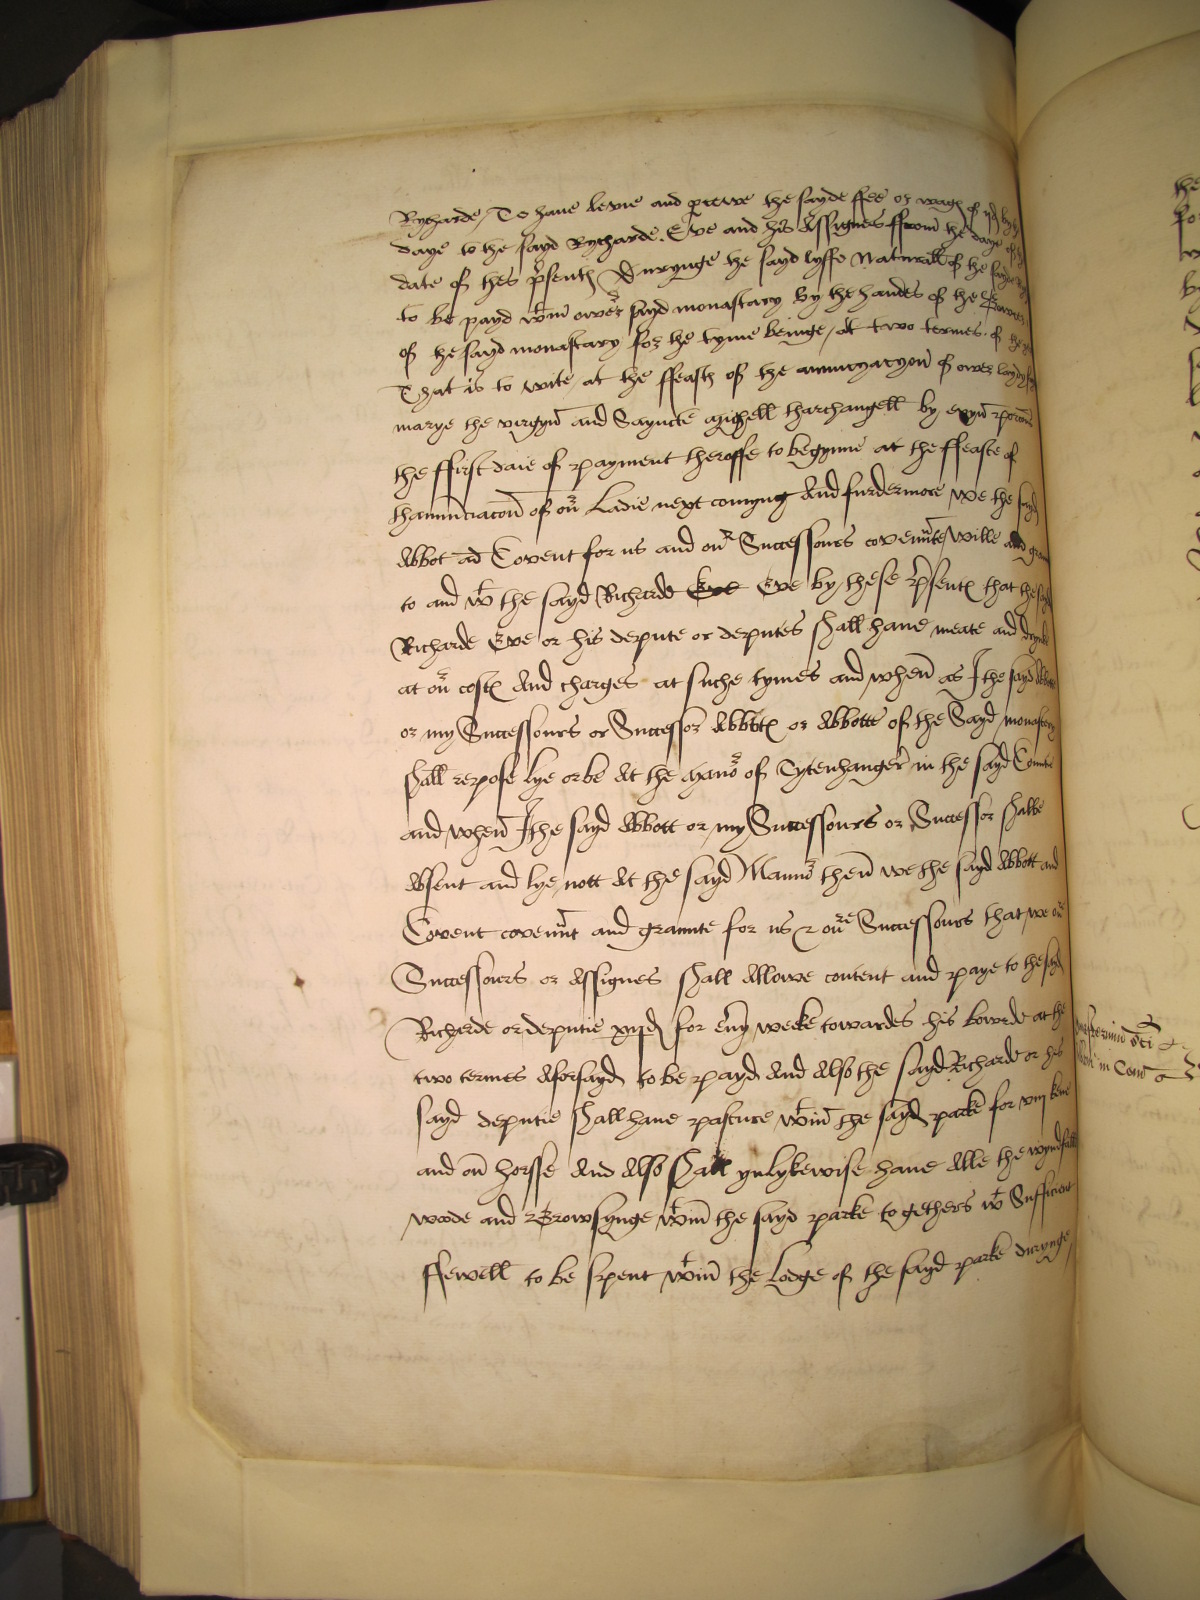 Rycharde, To haue leuie and the sayde ffee or wag
daye to the sayd Rycharde Eve and his Assignes ffrom the daye of
date of thes psent Durynge the sayd lyffe Naturall of the sayd
to be payd wtin ower sayd monastary by the handes of the
of the sayd monastary for the tyme beinge, at two termes of the
That is to wite, at the ffeast of the annucyacyon of ower lady
marye the virgyn and Sayncte Mighell tharchangell by evyn porcons
the ffirst daie of payment theroffe to begynne at the ffeaste of
thannunciacon of our Ladie next comyng And furdermore we the sayd
Abbot ad Covent for us and our Successours covennte, wille and
to and wt the sayd Richarde Eve Eve by these psent that the sayd
Richarde Eve or his depute or deputes shall haue meate and drynke
at our cost And charges at suche tymes and, when as I the sayd Abbott
or my Successours or Successor Abbott or Abbotts of the Sayd monastery
shall repose lye or be At the Manor of Tytenhanger in the sayd Countie
and when I the sayd Abbott or, my Successours or Successor shalbe
Absent and lye, nott At the sayd Mannor then we the sayd Abbott and
Covent covennt and graunte for us & oure Successours that, we our
Successours or Assignes shall Allowe content and paye to the sayd
Richerde or deputie for euy weeke towardes his bowrde at the
two termes Aforsayd to be payd And Also the sayd Richarde or his
sayd deputie shall haue pasture wtin the sayd parke for viij kene
and on horsse And Also shall ynlykewise haue Alle the wyndfall
wode and Browsynge wtin the sayd parke togethers wt Sufficient
ffewell to be spent wtin the Lodge of the sayd parke durynge